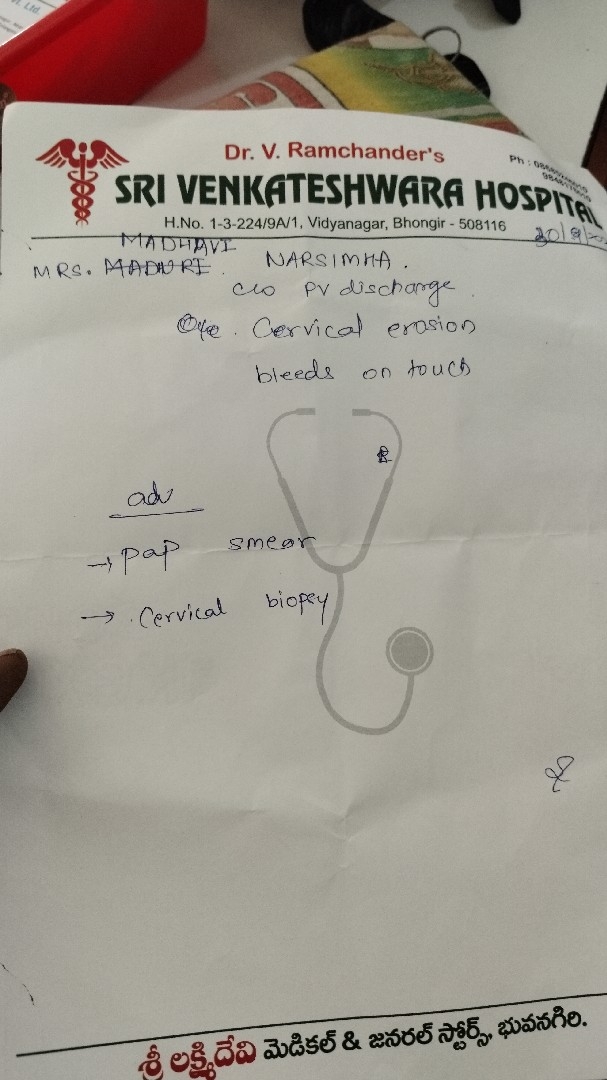 Ltd.
Dr. V. Ramchander's
Ph :
SRI VENKATESHWARA HOSPITAL
H.No. 1-3-224/9A/1, Vidyanagar, Bhongir - 508116
MADHAVI
MRS. MADURI NARSIMHA.
c/o PV discharge
O/e. Cervical erosion
bleeds on touch
adv
→ pap smear
→ Cervical biopsy
శ్రీ లక్ష్మిదేవి మెడికల్ & జనరల్ స్టోర్స్, భువనగిరి.